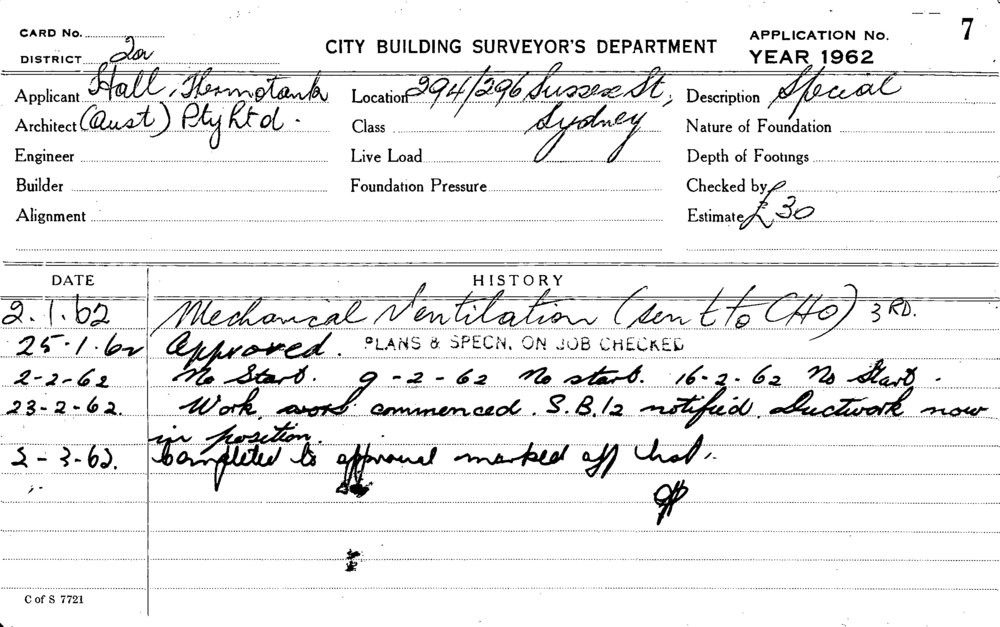 CARD No.
DISTRICT 2a
CITY BUILDING SURVEYOR'S DEPARTMENT
APPLICATION No. 7
YEAR 1962
Applicant Hall, Thermotank
Architect (Aust) Pty Ltd.
Engineer
Builder
Alignment
Location 294/296 Sussex St,
Class Sydney
Live Load
Foundation Pressure
Description Special
Nature of Foundation
Depth of Footings
Checked by
Estimate £30
DATE HISTORY
2.1.62 Mechanical Ventilation (sent to CHO) 3RD.
25.1.62 Approved. PLANS & SPECN. ON JOB CHECKED
2-2-62 No Start. 9-2-62 No start. 16-2-62 No Start.
23-2-62. Work commenced. S.B.12 notified. Ductwork now
in position.
2-3-62. Completed to approval marked off list.
C of S 7721